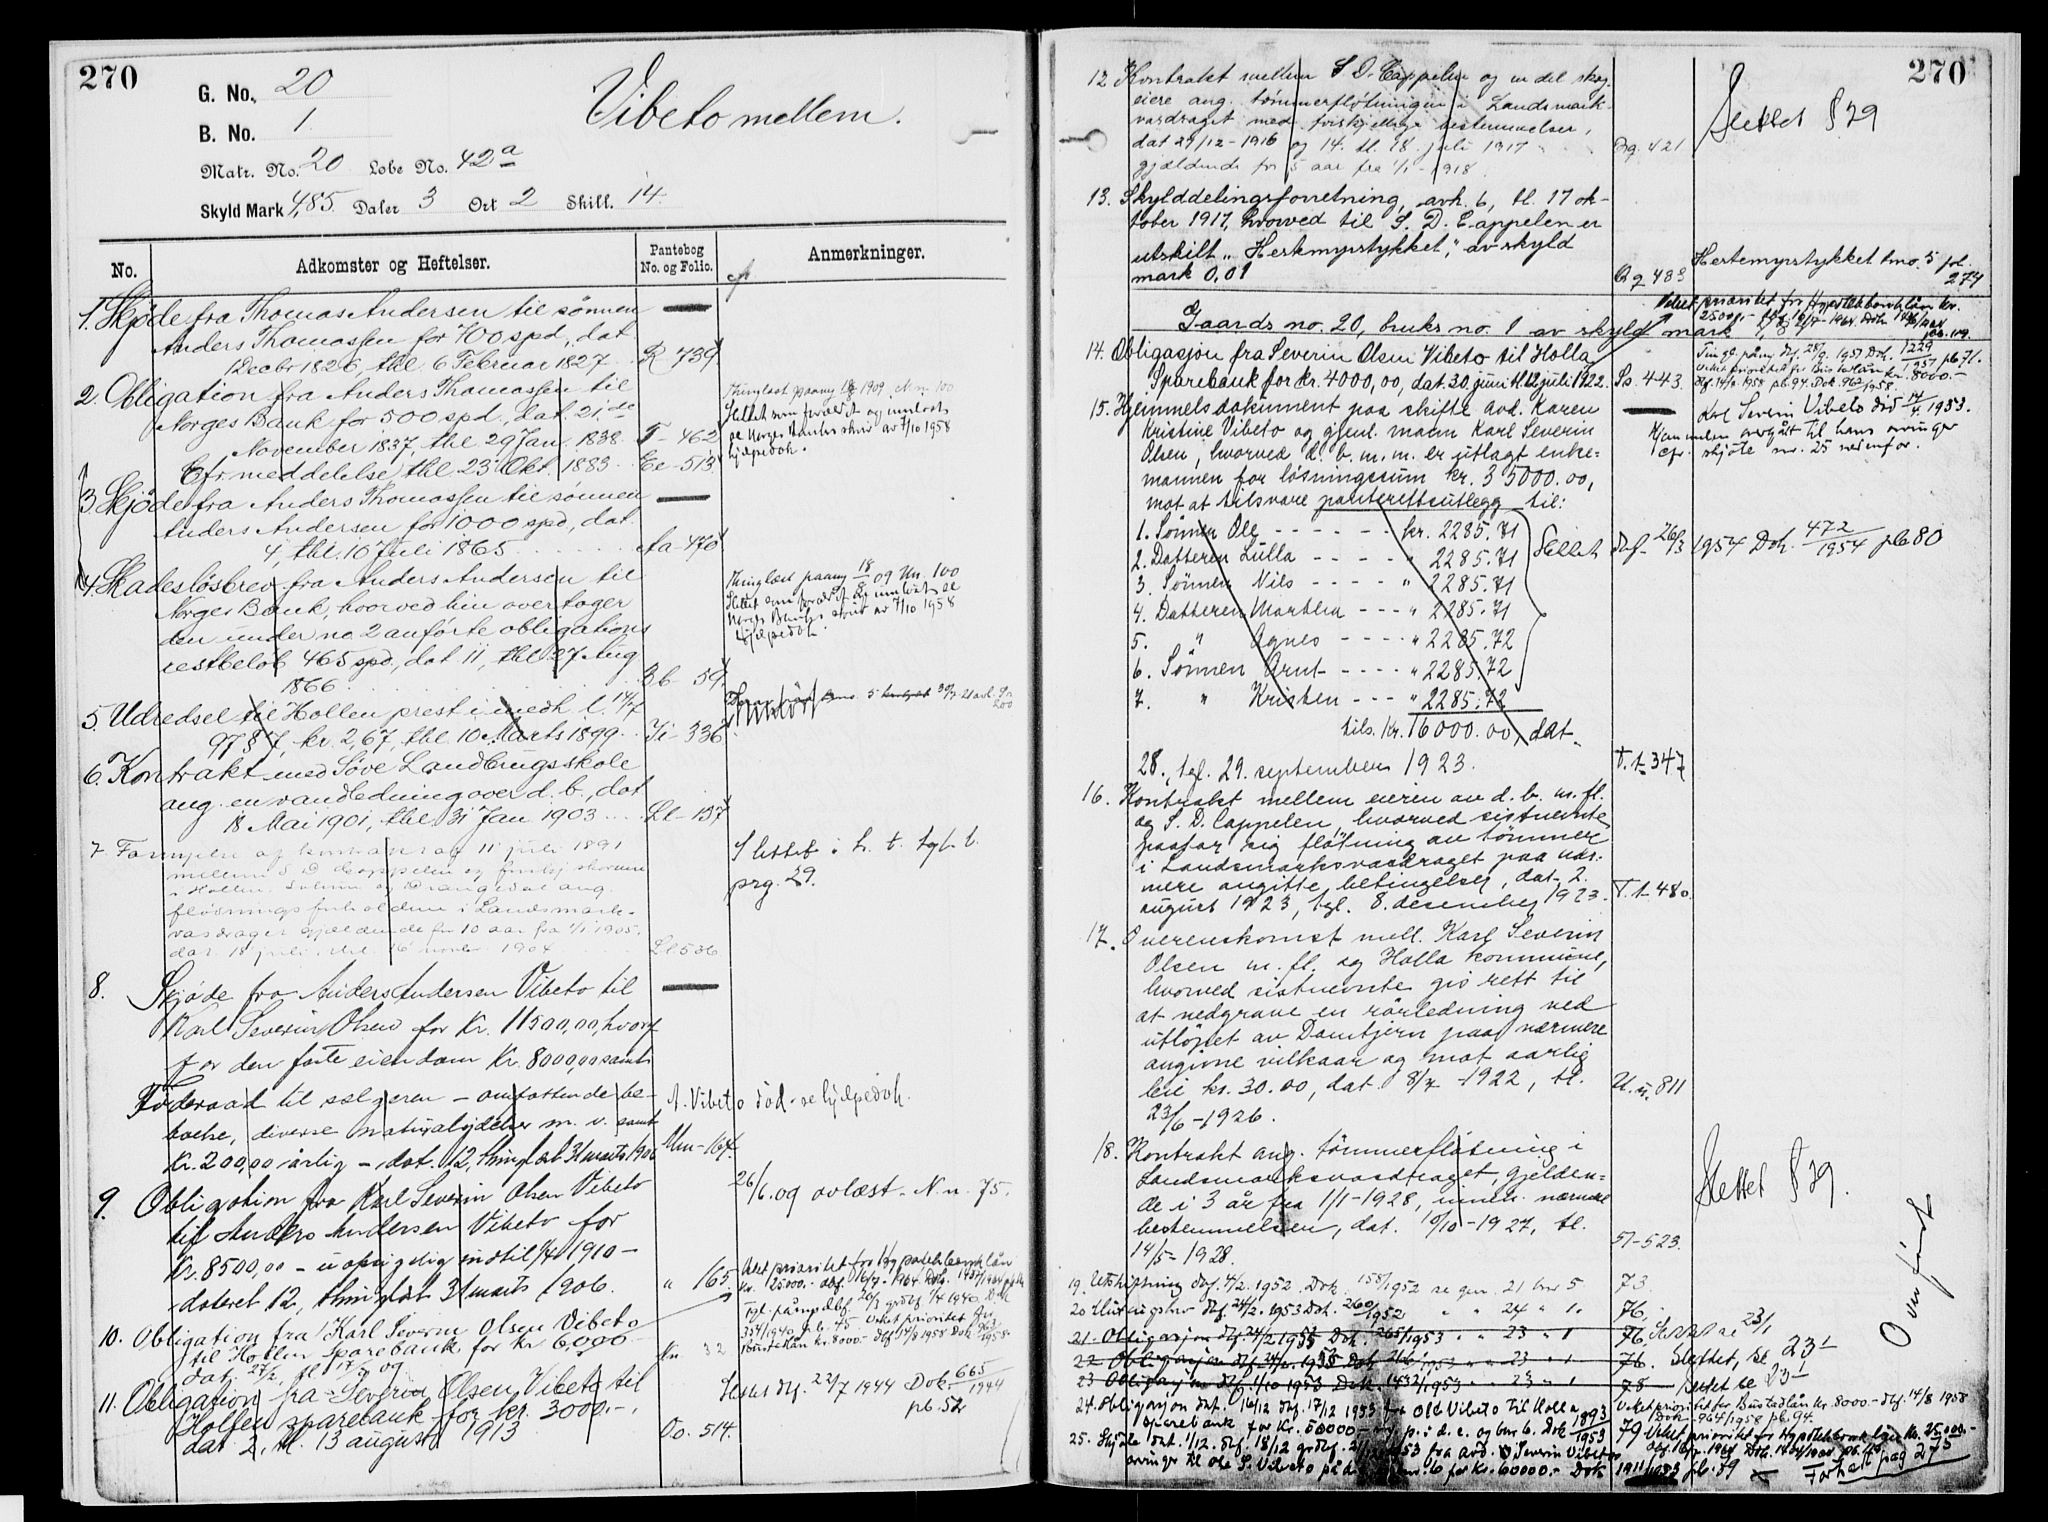 270
G. No. 20
B. No. 1
Vibeto mellem.
Matr. No. 20 Løbe No. 42a
Skyld Mark 4,85 Daler 3 Ort 2 Skill. 14
No.
Adkomster og Heftelser.
Pantebog
No. og Folio.
Anmerkninger.
1. Skjøde fra Thomas Andersen til sønnen
Anders Thomassen for 700 spd., dat.
1 Decbr 1826, thl. 6 Februar 1827 R 739
2. Obligation fra Anders Thomassen til
Norges Bank for 500 spd., dat. 21de
November 1837, thl. 29 Jan. 1838. T-462
Cfr. meddelelse thl. 23 Okt. 1883. Ee-513
Slettet som forældet og innløst,
se Norges Banks skriv av 7/10 1958
hjelpedok.
3. Skjøde fra Anders Thomassen til sønnen
Anders Andersen for 1000 spd., dat.
4, thl. 10 Juli 1865 Aa-470
4. Skadesløsbrev fra Anders Andersen til
Norges Bank, hvorved hin overtager
den under no 2 anførte obligations
restbeløb 465 spd., dat. 11, thl. 27 Aug
1866 Bb-59
Thinglæst paany 18/8 09 Nn. 100
Slettet som forældet og innløst se
Norges Banks skriv av 7/10 1958
hjelpedok.
5. Udredsel til Hollen prest i medh. l. 14/7
97 § 7, kr. 2,67, thl. 10 Marts 1899. Ii-336
6. Kontrakt med Søve Landbrugsskole
ang. en vandledning over d. b., dat
18 Mai 1901, thl. 31 Jan 1903 Ll-137
7. Fornyelse af kontrakt af 11 juli 1891
mellem S. D. Cappelen og
i Hollen, Lunde og Drangedal ang.
fløtningsforholdene i Landsmark-
vasdraget gjældende for 10 aar fra 1/1 1905.
dat. 18 juli, thl. 16 novbr. 1904 Ll 536
Slettet i h. t. tgl. l.
prg. 29.
8. Skjøde fra Anders Andersen Vibeto til
Karl Severin Olsen for Kr. 11500,00, hvoraf
for den faste eiendom Kr. 8000,00 samt
Føderaad til sælgeren – omfattende be-
boelse, diverse naturalydelser m. v. samt
Kr. 200,00 årlig – dat. 12, thinglæst 31 marts 1906 Mm-164.
A. Vibeto død – se hjelpedok.
9. Obligation fra Karl Severin Olsen Vibeto
til Anders Andersen Vibeto for
Kr. 8500,00 – uopsigelig indtil 1/4 1910 –
dateret 12, thinglæst 31 marts 1906. " 165.
26/6. 09 avlæst. N. n. 75.
10. Obligation fra Karl Severin Olsen Vibeto
til Hollen sparebank for Kr 6,000
dat. 27/2, tl 17/3 09 Nn. 32
Veket prioritet for Hypotekbanklån
kr. 25000.- dbf. 16/7-1964 Dok. 1487/1964
Tgl. påny dbf. 26/3 grdbf 1/4 1940. Dok
354/1940 p.b. 45. Veket prioritet for
Bustadlån kr. 8000.- dbf 14/8 1958 Dok 963/1958.
11. Obligation fra Severin Olsen Vibeto til
Hollen sparebank for kr. 3000.-
dat 2, tl. 13 august 1913 Oo. 514.
Slettet dbf. 22/7 1944 Dok. 665/1944
pb. 52
270
12. Kontrakt mellem S. D. Cappelen og en del skog
eiere ang. tømmerfløtningen i Landsmark-
vasdraget med forskjellige bestemmelser,
dat 29/12-1916 og 14. tl. 18. juli 1917
gjældende for 5 aar fra 1/1-1918. Qq. 421
Slettet § 29
13. Skylddelingsforretning, avh. 6, tl. 17 ok-
tober 1917, hvorved til S. D. Cappelen er
utskilt „Herkmyrstykket", av skyld
mark 0,01 Qq 483
Hertemyrstykket bno. 5 fol.
274
Gaards no. 20, bruks no. 1 av skyld mark
Veket prioritet for Hypotekbanklån kr.
25000.- dbf. 16/7-1964. Dok.
14. Obligasjon fra Severin Olsen Vibeto til Holla
Sparebank for kr. 4000,00, dat. 30. juni tl. 12 juli 1922. Ss. 443.
Tingl. påny dbf. 28/9. 1957 Dok. 1229/1957 pb 71.
Veket prioritet for Bustadlån kr. 8000.-
dbf. 14/8 1958 pb. 94. Dok 962/1958.
15. Hjemmelsdokument paa skifte avd. Karen
Kristine Vibeto og gjenl. mann Karl Severin
Olsen, hvorved d. b. m. m. er utlagt enke-
mannen for løsningssum kr. 35000.00,
mot at tilsvare panterettsutlegg til:
Karl Severin Vibeto død 14/4 1953.
Hjemmelen overgått til hans arvinger
cfr. skjøte nr. 25 nedenfor.
1. Sønnen Ole - - - - - kr. 2285.71
2. Datteren Lulla - - - - " 2285.71
3. Sønnen Nils - - - - " 2285.71
4. Datteren Martha - - - " 2285.71
5. " Agnes - - - - " 2285.72
6. Sønnen Arnt - - - - " 2285.72
7. " Kristen - - - " 2285.72
tils. kr. 16000.00, dat.
28., tgl. 29. september 1923. T.t-347
Slettet dbf. 26/3 1954 Dok. 472/1954 pb 80
16. Kontrakt mellem eieren av d. b. m. fl.
og S. D. Cappelen, hvorved sistnevnte
paatar sig fløtning av tømmer
i Landsmarksvasdraget paa nær-
mere angitte betingelser, dat. 2.
august 1923, tgl. 8. desember 1923. T.t-480
17. Overenskomst mell. Karl Severin
Olsen m. fl. og Holla kommune,
hvorved sistnevnte gis rett til
at nedgrave en rørledning ved
utløpet av Damtjern paa nærmere
angivne vilkaar og mot aarlig
leie kr. 30.00, dat. 8/7-1922, tl.
23/6-1926. U.u. 811
18. Kontrakt ang. tømmerfløtning i
Landsmarksvasdraget, gjelden-
de i 3 år fra 1/1-1928, innen nærmere
bestemmelser, dat. 10/10-1927, tl.
14/5-1928. 51-523.
Slettet § 29.
19. Utskiftning dbf. 4/2. 1952 Dok. 158/1952 se gnr. 21 bnr 5. 73.
20. dbf. 24/2. 1953 Dok. 260/1952 " " 24 " 10 76.
21. Obligasjon dbf. 24/2 1953 Dok. 265/1953 " " 23 " 1 76. Slettet se 23/1
22. Obligasjon dbf. 24/2. 1953 Dok. 266/1953 " " 23 " 1 76. Slettet, se 23-1
23. Obligasjon dbf. 1/10 1953 Dok. 1432/1953 " " 23 " 1 78 Slettet se 23-1
Overført
24. Obligasjon dat. 16/12 dbf. 17/12 1953 fra Olav Vibeto til Holla
sparebank for kr. 50000.- p. i d. e. og bnr 6. Dok 1893/1953 79
Veket prioritet for Bustadlån kr. 8000.- dbf. 14/8 1958
Dok. 964/1958 pb. 94.
Veket prioritet for Hypotekbanklån kr. 25,000.-
25. Skjøte dat. 1/12. dbf. 18/12 1953 fra avd. Severin Vibetos
arvinger til Ole S. Vibeto på d. e. og bnr. 6 for kr. 60000.- Dok 1911/1953 pb. 79
Forts. pag 275